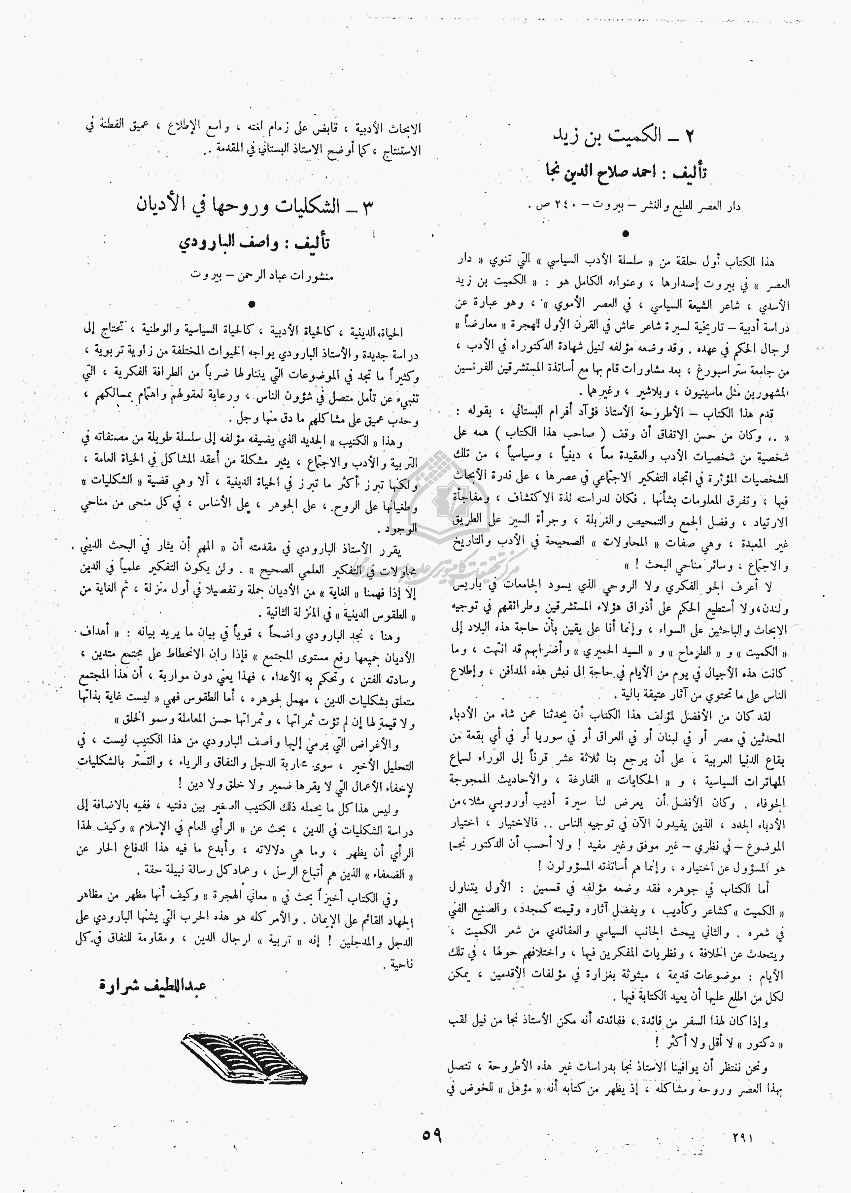 ٢ – الكميت بن زيد
تأليف : احمد صلاح الدين نجا
دار العصر للطبع والنشر – بيروت – ٢٤٠ ص .
هذا الكتاب أول حلقة من « سلسلة الأدب السياسي » التي تنوي « دار
العصر » في بيروت إصدارها ، وعنوانه الكامل هو : « الكميت بن زيد
الأسدي ، شاعر الشيعة السياسي ، في العصر الأموي » ، وهو عبارة عن
دراسة أدبية – تاريخية لسيرة شاعر عاش في القرن الأول للهجرة « معارضاً »
لرجال الحكم في عهده . وقد وضعه مؤلفه لنيل شهادة الدكتوراه في الأدب ،
من جامعة ستراسبورغ ، بعد مشاورات قام بها مع أساتذة المستشرقين الفرنسيين
المشهورين مثل ماسينيون ، وبلاشير ، وغيرهما .
قدم هذا الكتاب – الأطروحة الأستاذ فؤآد أفرام البستاني ، بقوله :
« .. وكان من حسن الاتفاق أن وقف ( صاحب هذا الكتاب ) همه على
شخصية من شخصيات الأدب والعقيدة معاً ، دينياً ، وسياسياً ، من تلك
الشخصيات المؤثرة في اتجاه التفكير الاجتماعي في عصرها ، على قدرة الأبحاث
فيها ، وتفرق المعلومات بشأنها . فكان لدراسته لذة الاكتشاف ، ومفاجأة
الارتياد ، وفضل الجمع والتمحيص والغربلة ، وجرأة السير على الطريق
غير المعبدة ، وهي صفات « المحاولات » الصحيحة في الأدب والتاريخ
والاجتماع ، وسائر مناحي البحث ! »
لا أعرف الجو الفكري ولا الروحي الذي يسود الجامعات في باريس
ولندن،ولا أستطيع الحكم على أذواق هؤلاء المستشرقين وطرائقهم في توجيه
الابحاث والباحثين على السواء ، وإنما أنا على يقين بأن حاجة هذه البلاد إلى
« الكميت » و « الطرماح » و « السيد الحميري » وأضرابهم قد انتهت ، وما
كانت هذه الأجيال في يوم من الأيام في حاجة إلى نبش هذه المدافن ، وإطلاع
الناس على ما تحتوي من آثار عتيقة بالية .
لقد كان من الأفضل لمؤلف هذا الكتاب أن يحدثنا عمن شاء من الأدباء
المحدثين في مصر أو في لبنان أو في العراق أو في سوريا أو في أي بقعة من
بقاع الدنيا العربية ، على أن يرجع بنا ثلاثة عشر قرناً إلى الوراء لسماع
المهاترات السياسية ، و « الحكايات » الفارغة ، والأحاديث الممجوجة
الجوفاء . وكان الأفضل أن يعرض لنا سيرة أديب أوروبي مثلا،من
الأدباء الجدد ، الذين يفيدون الآن في توجيه الناس .. فالاختيار ، اختيار
الموضوع – في نظري – غير موفق وغير مفيد ! ولا أحسب أن الدكتور نجا
هو المسؤول عن اختياره ، وإنما هم أساتذته المسؤولون !
أما الكتاب في جوهره فقد وضعه مؤلفه في قسمين : الأول يتناول
« الكميت » كشاعر وكأديب ، ويفضل آثاره وقيمته كمجدد، والصنيع الفني
في شعره . والثاني يبحث الجانب السياسي والعقائدي من شعر الكميت ،
ويتحدث عن الخلافة ، ونظريات المفكرين فيها ، واختلافهم حولها ، في تلك
الأيام : موضوعات قديمة ، مبثوثة بغزارة في مؤلفات الأقدمين ، يمكن
لكل من اطلع عليها أن يعيد الكتابة فيها .
وإذا كان لهذا السفر من فائدة ، ففائدته أنه مكن الأستاذ نجا من نيل لقب
« دكتور » لا أقل ولا أكثر !
ونحن ننتظر أن يوافينا الاستاذ نجا بدراسات غير هذه الأطروحة ، تتصل
بهذا العصر وروحه ومشاكله ، إذ يظهر من كتابه أنه « مؤهل » للخوض في
الابحاث الأدبية ، قابض على زمام لغته ، واسع الإطلاع ، عميق الفطنة في
الاستنتاج ، كما أوضح الاستاذ البستاني في المقدمة .
٣ – الشكليات وروحها في الأديان
تأليف : واصف البارودي
منشورات عباد الرحمن – بيروت
الحياة الدينية ، كالحياة الأدبية ، كالحياة السياسية والوطنية ، تحتاج إلى
دراسة جديدة والأستاذ البارودي يواجه الحيوات المختلفة من زاوية تربوية ،
وكثيراً ما تجد في الموضوعات التي يتناولها ضرباً من الطرافة الفكرية ، التي
تنبىء عن تأمل متصل في شؤون الناس ، ورعاية لعقولهم واهتمام بمسالكهم ،
وحدب عميق على مشاكلهم ما دق منها وجل .
وهذا « الكتيب » الجديد الذي يضيفه مؤلفه إلى سلسلة طويلة من مصنفاته في
التربية والأدب والاجتماع ، يثير مشكلة من أعقد المشاكل في الحياة العامة ،
ولكنها تبرز أكثر ما تبرز في الحياة الدينية ، ألا وهي قضية « الشكليات »
وطغيانها على الروح . على الجوهر ، على الأساس ، في كل منحى من مناحي
الوجود .
يقرر الأستاذ البارودي في مقدمته أن « المهم أن يثار في البحث الديني
محاولات في التفكير العلمي الصحيح » . ولن يكون التفكير علمياً في الدين
إلا إذا فهمنا « الغاية » من الأديان جملة وتفصيلا في أول منزلة ، ثم الغاية من
« الطقوس الدينية » في المنزلة الثانية .
وهنا ، نجد البارودي واضحاً ، قوياً في بيان ما يريد بيانه : « أهداف
الأديان جميعها رفع مستوى المجتمع » فإذا ران الانحطاط على مجتمع متدين ،
وسادته الفتن ، وتحكم به الأعداء ، فهذا يعني دون مواربة ، أن هذا المجتمع
متعلق بشكليات الدين ، مهمل لجوهره ، أما الطقوس فهي « ليست غاية بذاتها
ولا قيمة لها إن لم تؤت ثمراتها ، وثمراتها حسن المعاملة وسمو الخلق »
والأغراض التي يرمي إليها واصف البارودي من هذا الكتيب ليست ، في
التحليل الأخير ، سوى محاربة الدجل والنفاق والرياء ، والتستر بالشكليات
لإخفاء الأعمال التي لا يقرها ضمير ولا خلق ولا دين !
وليس هذا كل ما يحمله ذلك الكتيب الصغير بين دفتيه ، ففيه بالاضافة إلى
دراسة الشكليات في الدين ، بحث عن « الرأي العام في الإسلام » وكيف لهذا
الرأي أن يظهر ، وما هي دلالاته ، وأبدع ما فيه هذا الدفاع الحار عن
« الضعفاء » الذين هم أتباع الرسل ، وعماد كل رسالة نبيلة حقة .
وفي الكتاب أخيراً بحث في « معاني الهجرة » وكيف أنها مظهر من مظاهر
الجهاد القائم على الإيمان . والأمر كله هو هذه الحرب التي يشنها البارودي على
الدجل والمدجلين ! إنه « تربية » لرجال الدين ، ومقاومة للنفاق في كل
ناحية .
عبداللطيف شرارة
٥٩
٢٩١